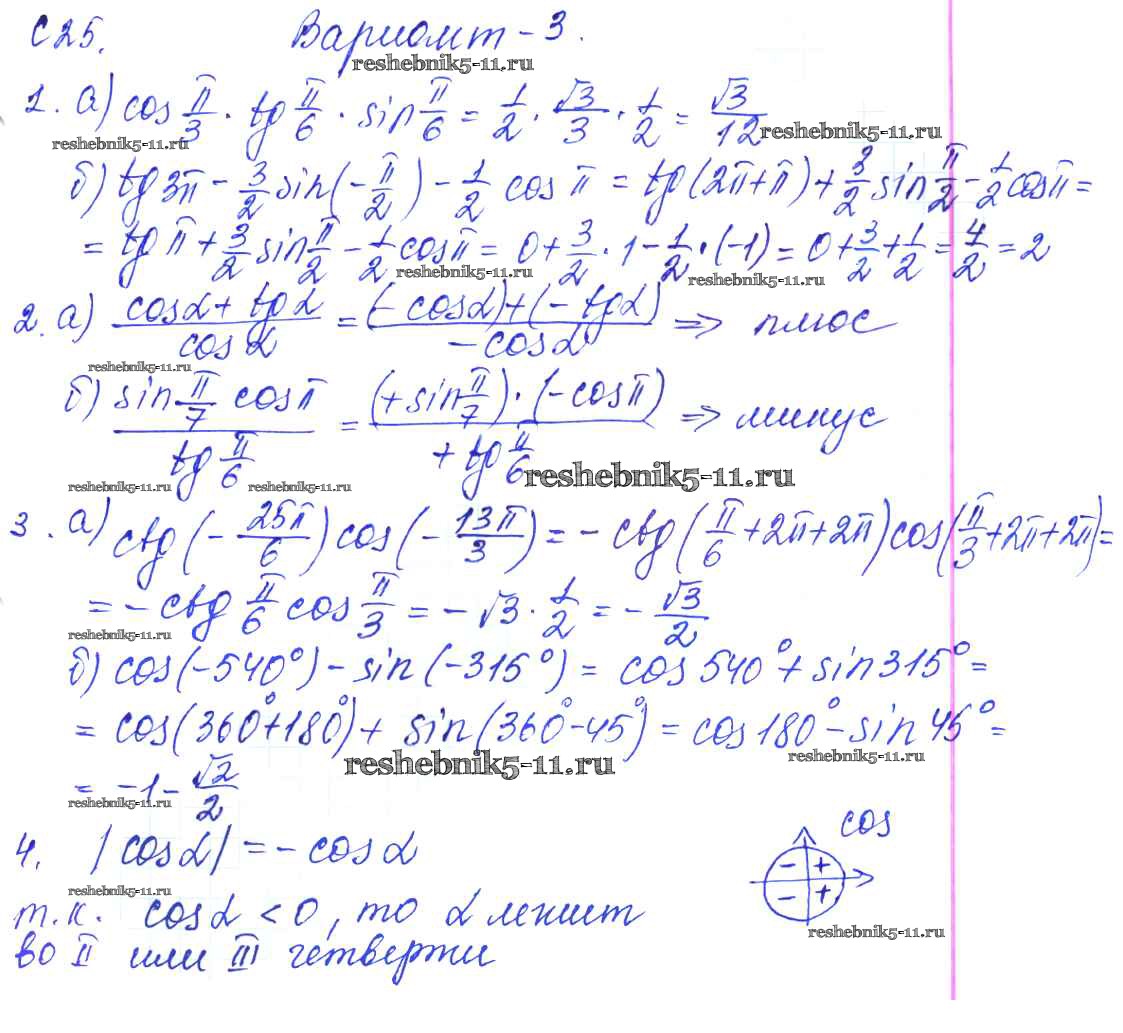 С 25. Вариант - 3.
reshebnik5-11.ru
1. а) cos π/3 · tg π/6 · sin π/6 = 1/2 · √3/3 · 1/2 = √3/12
reshebnik5-11.ru reshebnik5-11.ru
б) tg 3π - 3/2 sin(-π/2) - 1/2 cos π = tg(2π+π) + 3/2 sin π/2 - 1/2 cos π =
= tg π + 3/2 sin π/2 - 1/2 cos π = 0 + 3/2 · 1 - 1/2 · (-1) = 0 + 3/2 + 1/2 = 4/2 = 2
reshebnik5-11.ru reshebnik5-11.ru
2. а) (cos α + tg α)/(cos α) = ((-cos α) + (-tg α))/(-cos α) => плюс
reshebnik5-11.ru
б) (sin π/7 cos π)/(tg π/6) = ((+sin π/7) · (-cos π))/(+tg π/6) => минус
reshebnik5-11.ru reshebnik5-11.ru reshebnik5-11.ru
3. а) ctg(-25π/6) cos(-13π/3) = -ctg(π/6 + 2π + 2π) cos(π/3 + 2π + 2π) =
= -ctg π/6 cos π/3 = -√3 · 1/2 = -√3/2
reshebnik5-11.ru
б) cos(-540°) - sin(-315°) = cos 540° + sin 315° =
= cos(360° + 180°) + sin(360° - 45°) = cos 180° - sin 45° =
reshebnik5-11.ru reshebnik5-11.ru
= -1 - √2/2
reshebnik5-11.ru
4. |cos α| = - cos α
cos
- +
- +
reshebnik5-11.ru
т.к. cos α < 0, то α лежит
reshebnik5-11.ru
во II или III четверти